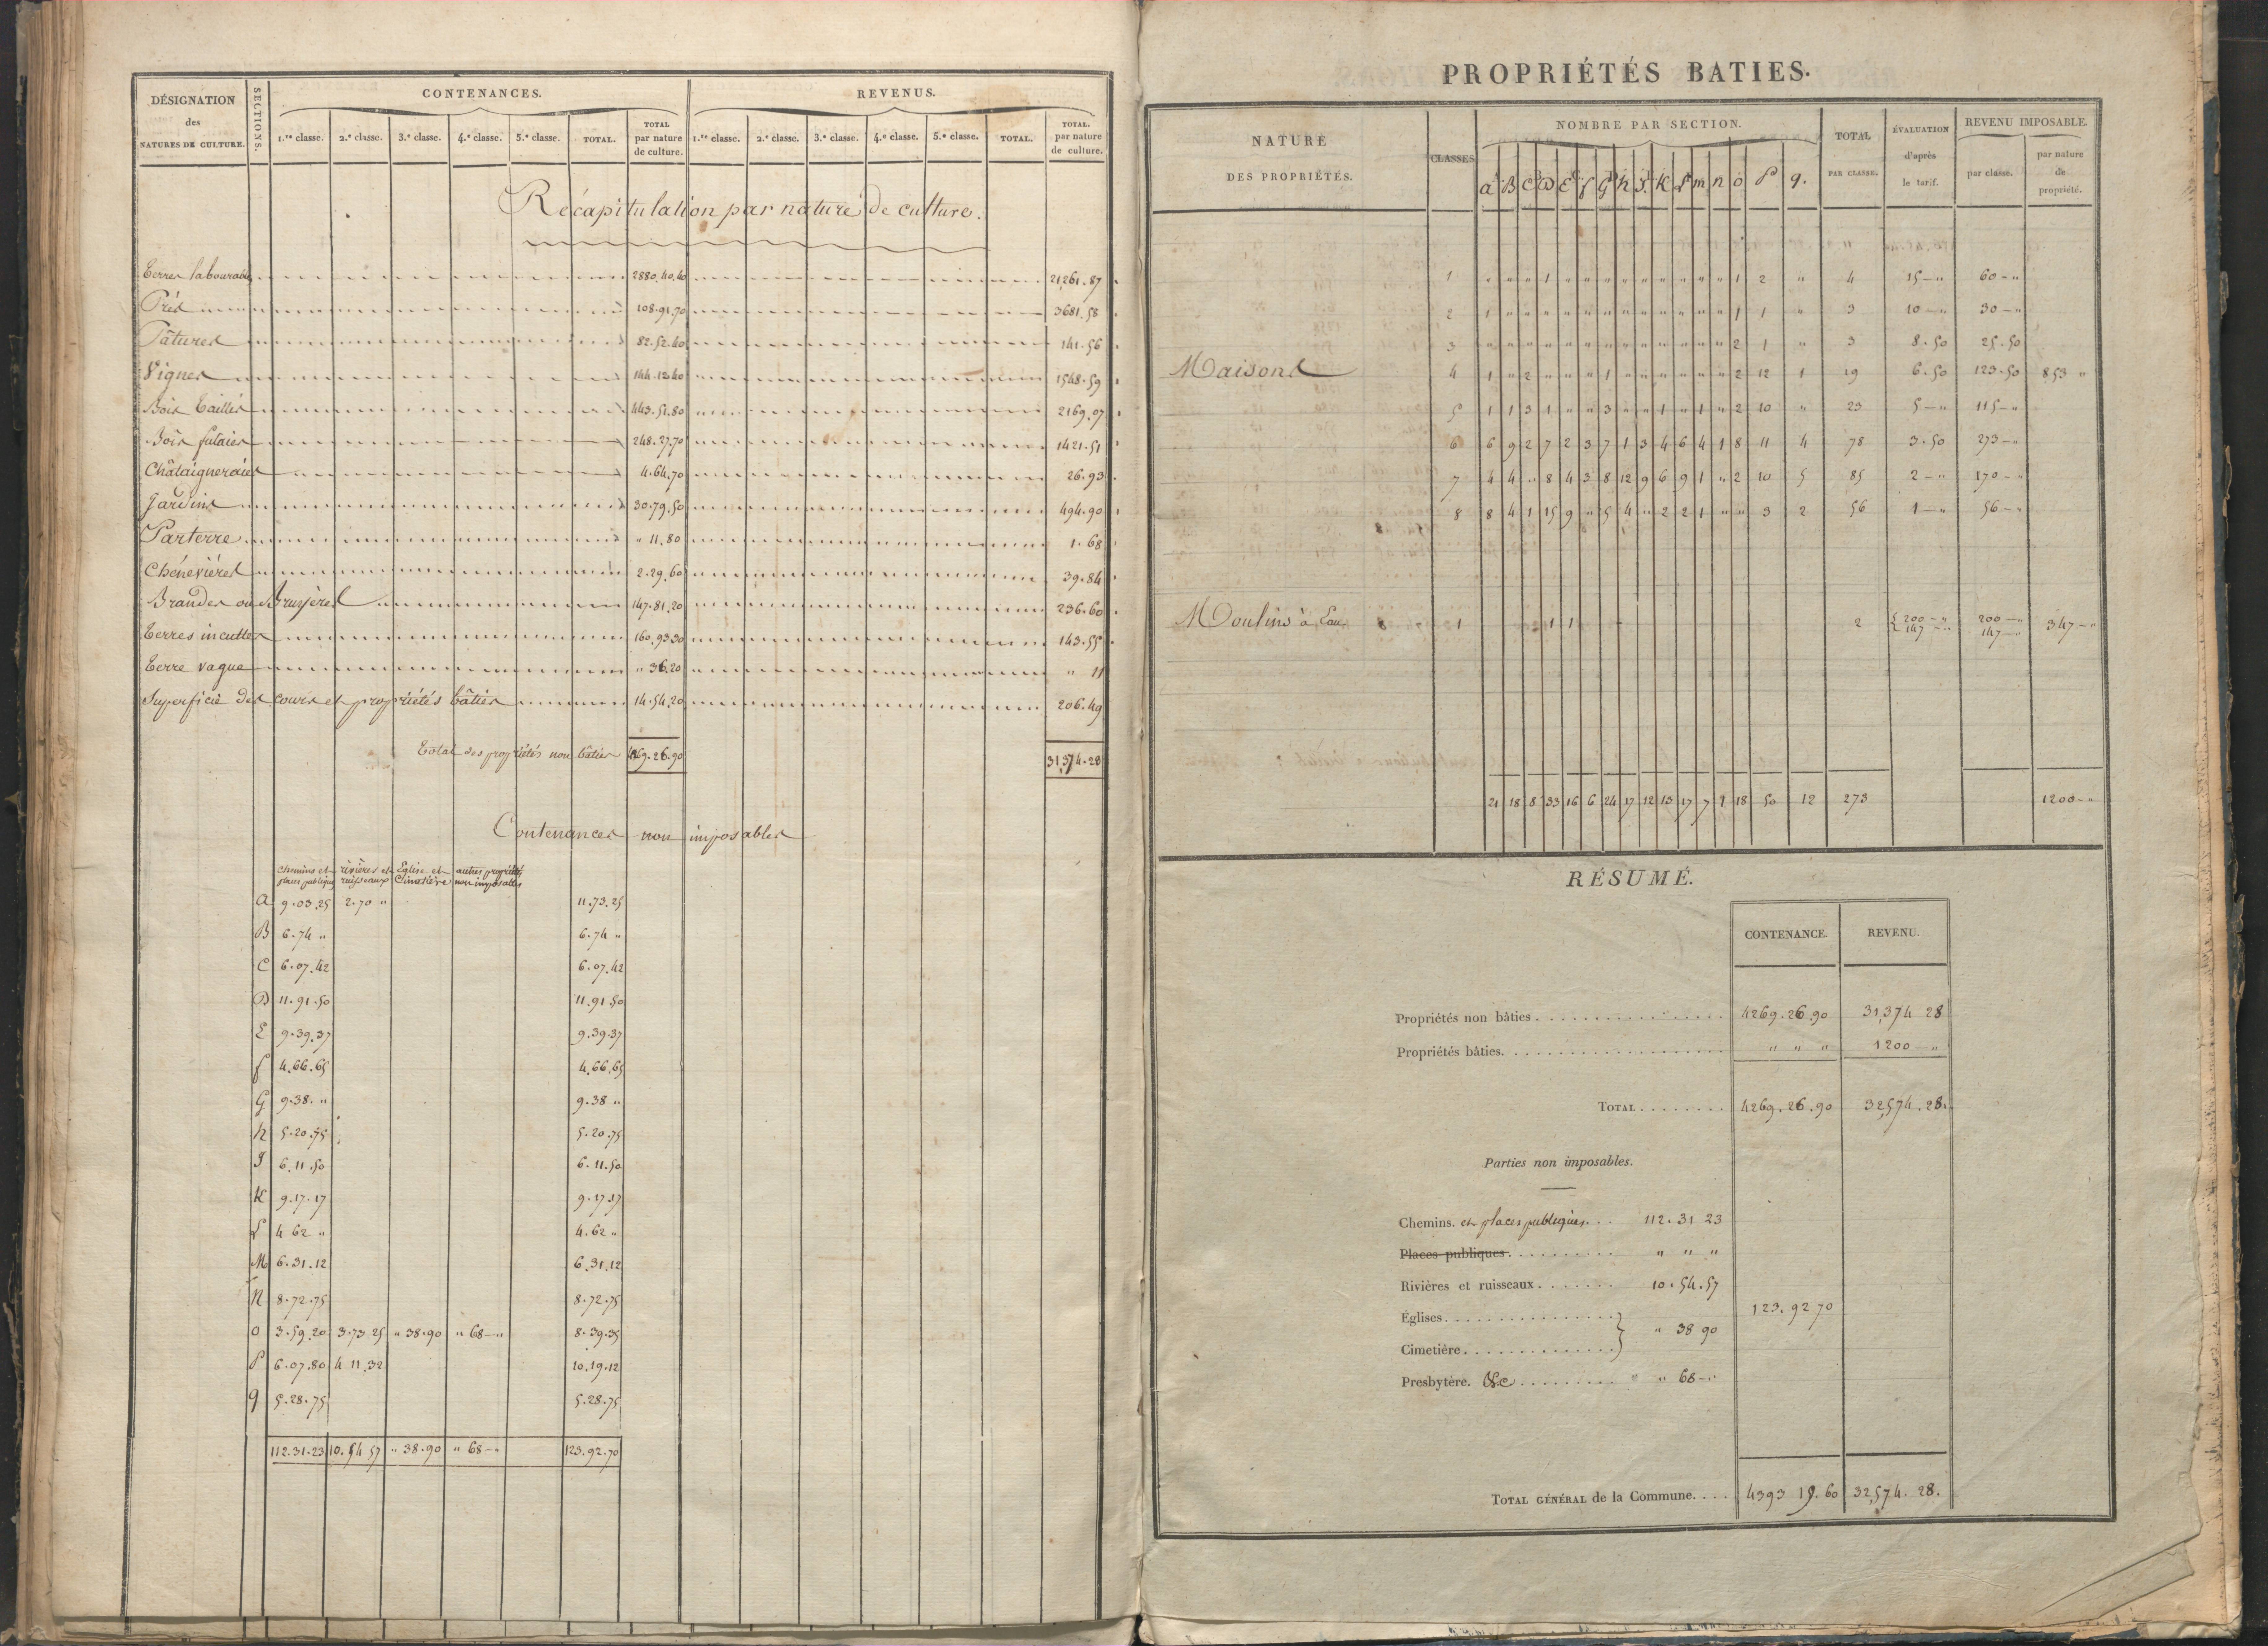 DÉSIGNATION des NATURES DE CULTURE. SECTIONS. CONTENANCES. REVENUS.
1.re classe. 2.e classe. 3.e classe. 4.e classe. 5.e classe. TOTAL. TOTAL par nature de culture. 1.re classe. 2.e classe. 3.e classe. 4.e classe. 5.e classe. TOTAL. TOTAL. par nature de culture.
Récapitulation par nature de culture.
Terres labourables 2880.40.40 21,261.87
Prés 108.91.70 3681.58
Pâtures 82.52.40 141.56
Vignes 144.12.40 1548.59
Bois taillis 443.51.80 2169.07
Bois futaies 248.27.70 1421.51
Châtaigneraies 4.64.70 26.93
Jardins 30.79.50 494.90
Parterre " 11.80 1.68
Chénevières 2.29.60 39.84
Brandes ou Bruyères 147.81.20 236.60
Terres incultes 160.93.30 143.55
Terre vague " 36.20 " 11
Superficie des cours et propriétés bâties 14.54.20 206.49
Total des propriétés non bâties 4269.26.90 31,374.28
Contenances non imposables
chemins et places publiques rivières et ruisseaux Eglise et Cimetière autres propriétés non imposables
A 9.03.25 2.70 " 11.73.25
B 6.74 " 6.74 "
C 6.07.42 6.07.42
D 11.91.50 11.91.50
E 9.39.37 9.39.37
f 4.66.65 4.66.65
G 9.38. " 9.38 "
h 5.20.75 5.20.75
J 6.11.50 6.11.50
K 9.17.17 9.17.17
L 4 62 " 4.62 "
M 6.31.12 6.31.12
N 8.72.75 8.72.75
O 3.59.20 3.73 25 " 38.90 " 68 — " 8.39.35
P 6.07.80 4 11.32 10.19.12
q 5.28.75 5.28.75
112.31.23 10.54 57 " 38.90 " 68 — " 123.92.70
PROPRIÉTÉS BATIES.
NATURE DES PROPRIÉTÉS. CLASSES NOMBRE PAR SECTION. TOTAL PAR CLASSE. ÉVALUATION d'après le tarif. REVENU IMPOSABLE. par classe. par nature de propriété.
a B C D E f G h J K L m n o P q.
1 " " " 1 " " " " " " " " " 1 2 " 4 15 — " 60 — "
2 1 " " " " " " " " " " " " 1 1 " 3 10 — " 30 — "
3 " " " " " " " " " " " " " 2 1 " 3 8.50 25.50
Maisons 4 1 " 2 " " " 1 " " " " " " 2 12 1 19 6.50 123.50 853 "
5 1 1 3 1 " " 3 " " 1 " 1 " 2 10 " 23 5 — " 115 — "
6 6 9 2 7 2 3 7 1 3 4 6 4 1 8 11 4 78 3.50 273 — "
7 4 4 " 8 4 3 8 12 9 6 9 1 " 2 10 5 85 2 — " 170 — "
8 8 4 1 15 9 " 5 4 " 2 2 1 " " 3 2 56 1 — " 56 — "
Moulins à Eau. 1 1 1 2 { 200 — " 147 — " 200 — " 147 — " 347 — "
21 18 8 33 16 6 24 17 12 13 17 7 1 18 50 12 273 1200 — "
RÉSUMÉ.
CONTENANCE. REVENU.
Propriétés non bâties 4269.26.90 31,374 28
Propriétés bâties. " " " 1200 — "
TOTAL 4269.26.90 32,574.28.
Parties non imposables.
Chemins. et places publiques. 112.31 23
Places publiques. " " "
Rivières et ruisseaux. 10.54.57
Églises. 123.92 70
} " 38 90
Cimetière.
Presbytère. &c " 68 — "
TOTAL GÉNÉRAL de la Commune. 4393 19.60 32,574.28.